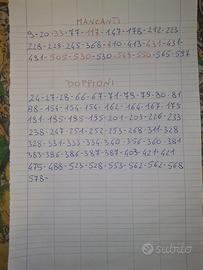 MANCANTI
9-20-33-77-117-147-178-212-223
228-229-245-368-410-413-431-431
431-505-530-530-563-550-565-597
DOPPIONI
24-27-28-66-67-71-78-79-80-81
88-154-154-154-162-164-167-173
191-195-195-195-201-203-226-233
238-247-251-252-253-268-311-328
328-331-333-334-340-356-360-381
383-386-386-387-387-403-421-421
475-488-523-528-553-562-562-568
578-
subito